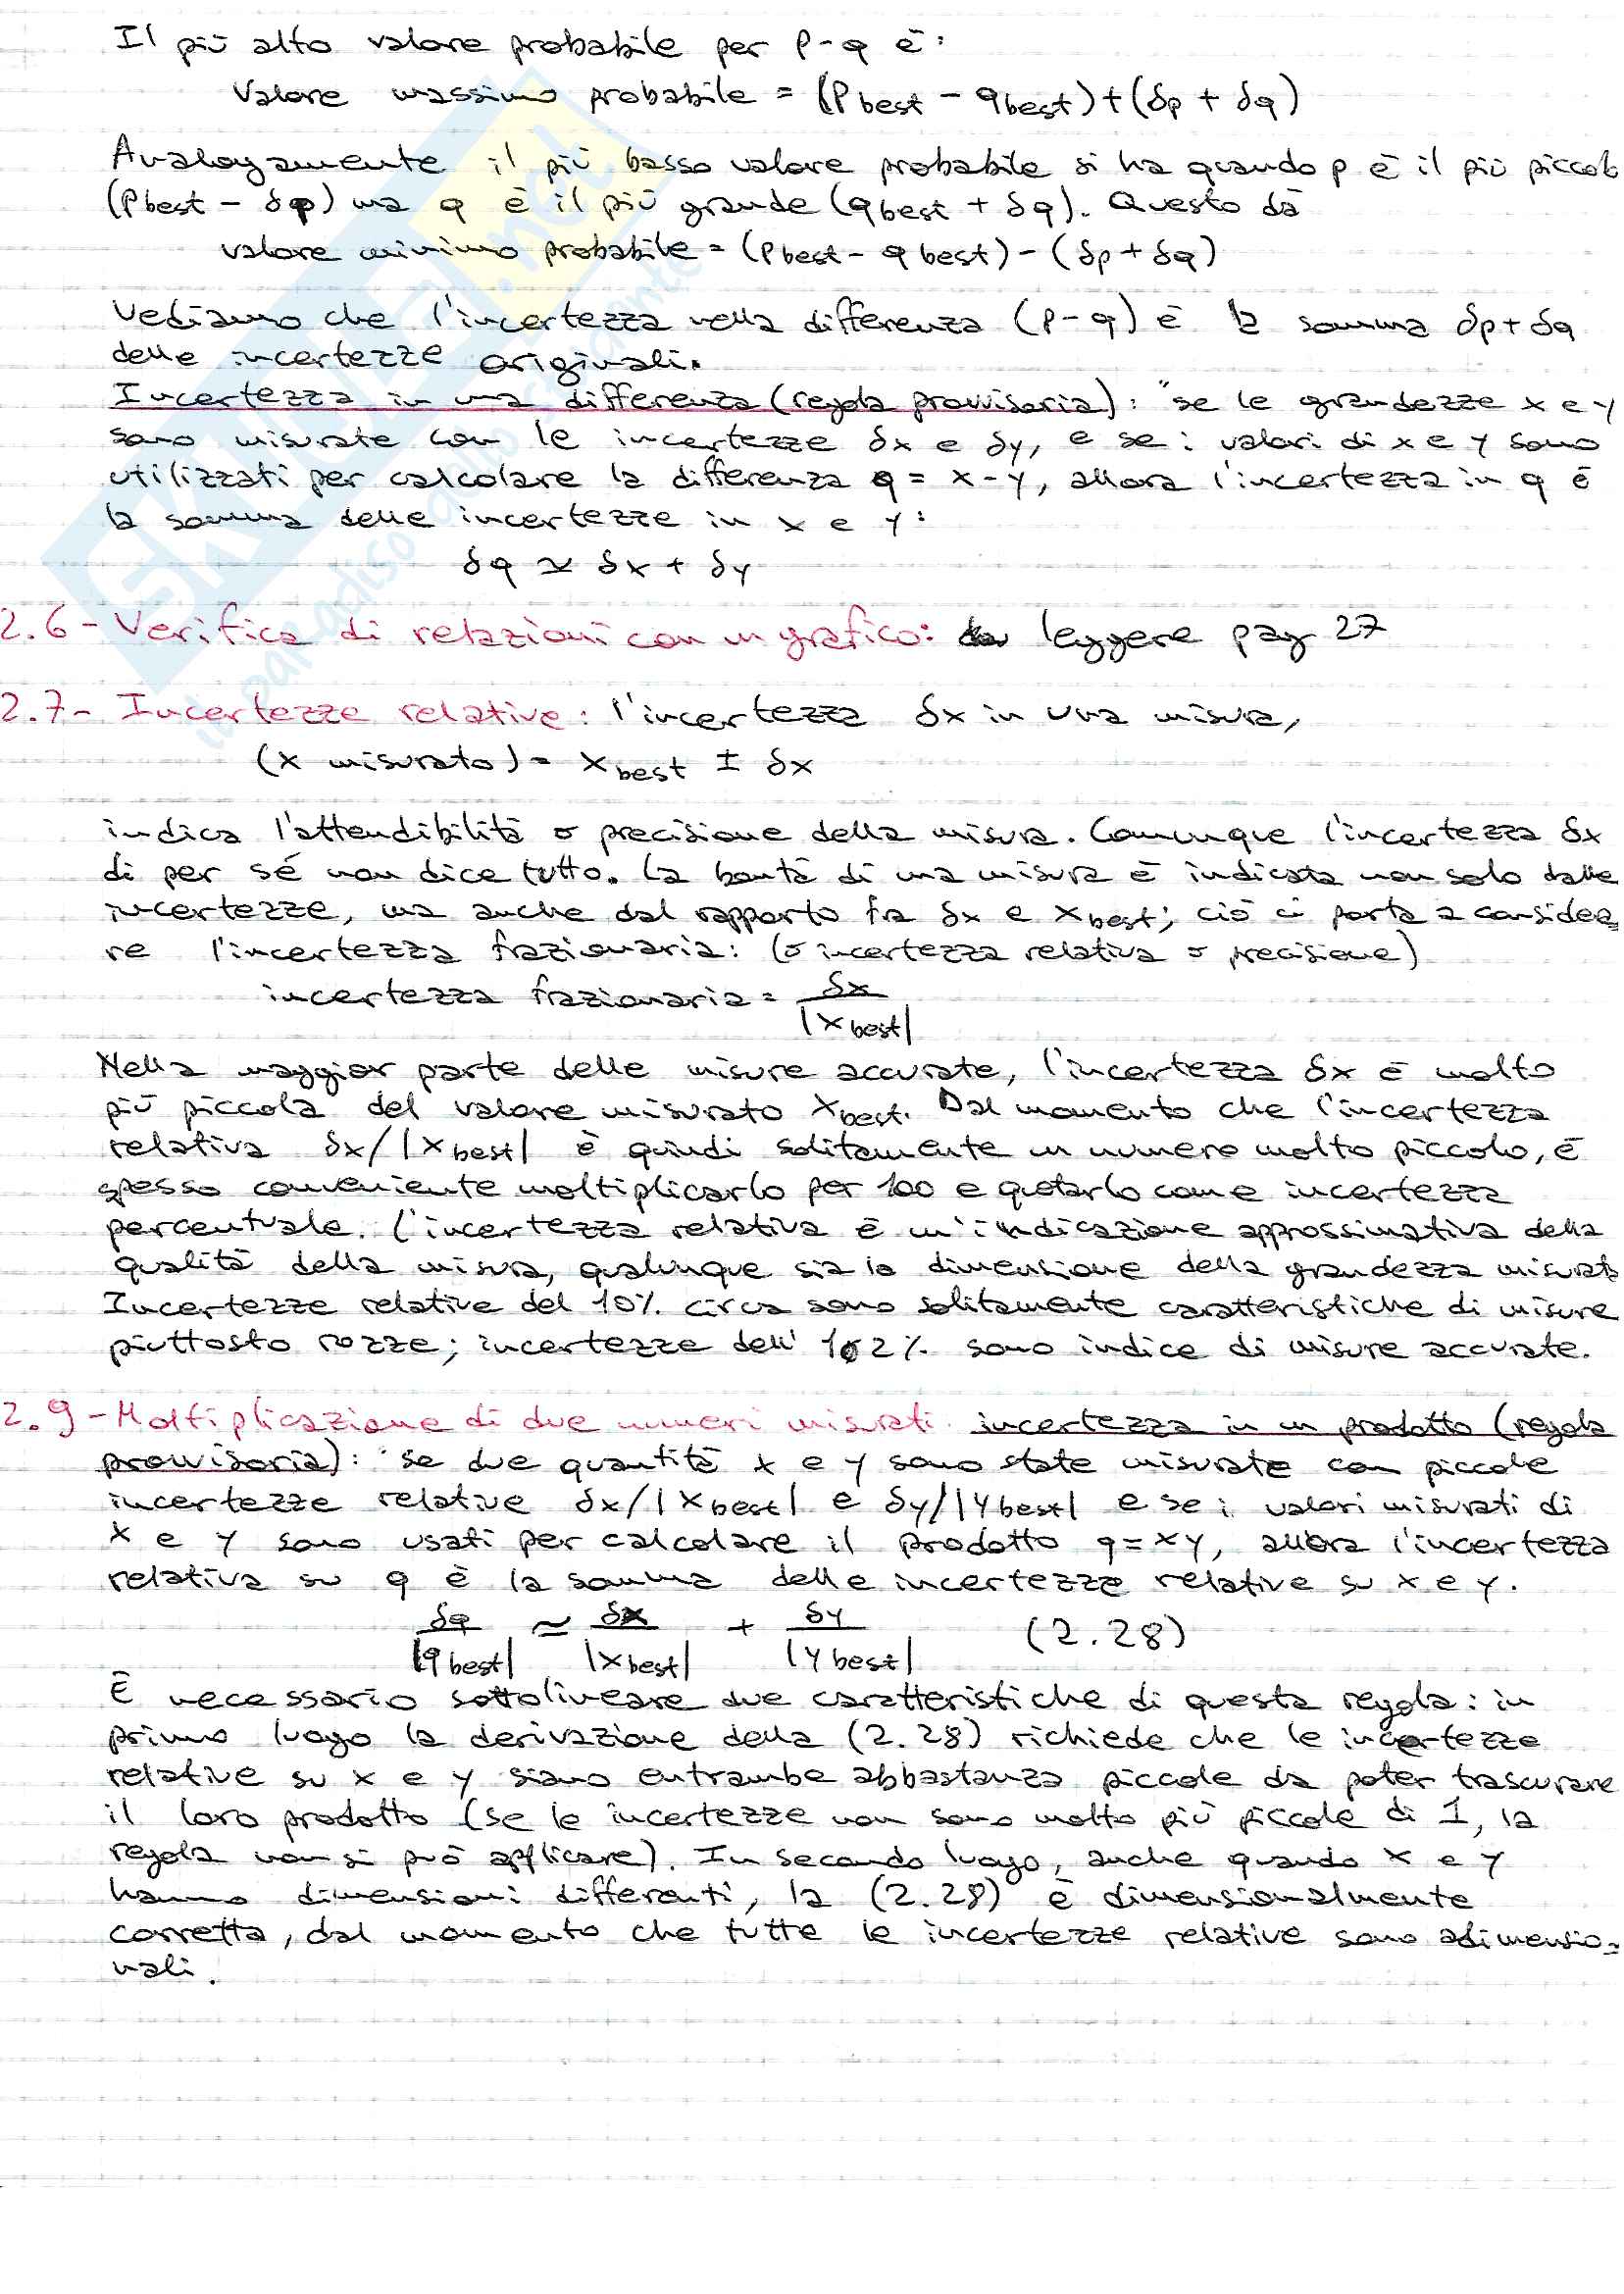 Il più alto valore probabile per p-q è:
Valore massimo probabile = (p best - q best) + (δp + δq)
Analogamente il più basso valore probabile si ha quando p è il più piccolo
(p best - δp) ma q è il più grande (q best + δq). Questo dà
valore minimo probabile = (p best - q best) - (δp + δq)
Vediamo che l'incertezza nella differenza (p-q) è la somma δp + δq
delle incertezze originali.
Incertezza in una differenza (regola provvisoria): "se le grandezze x e y
sono misurate con le incertezze δx e δy, e se i valori di x e y sono
utilizzati per calcolare la differenza q = x-y, allora l'incertezza in q è
la somma delle incertezze in x e y:
δq ≃ δx + δy
2.6 - Verifica di relazioni con un grafico: leggere pag 27
2.7 - Incertezze relative: l'incertezza δx in una misura,
(x misurato) = x best ± δx
indica l'attendibilità o precisione della misura. Comunque l'incertezza δx
di per sé non dice tutto. La bontà di una misura è indicata non solo dalle
incertezze, ma anche dal rapporto fra δx e x best; ciò ci porta a considera
re l'incertezza frazionaria: (o incertezza relativa o precisione)
incertezza frazionaria = δx / |x best|
Nella maggior parte delle misure accurate, l'incertezza δx è molto
più piccola del valore misurato x best. Dal momento che l'incertezza
relativa δx/|x best| è quindi solitamente un numero molto piccolo, è
spesso conveniente moltiplicarlo per 100 e quotarlo come incertezza
percentuale. L'incertezza relativa è un'indicazione approssimativa della
qualità della misura, qualunque sia la dimensione della grandezza misurata
Incertezze relative del 10% circa sono solitamente caratteristiche di misure
piuttosto rozze; incertezze dell' 1 o 2% sono indice di misure accurate.
2.9 - Moltiplicazione di due numeri misurati. incertezza in un prodotto (regola
provvisoria): "se due quantità x e y sono state misurate con piccole
incertezze relative δx/|x best| e δy/|y best| e se i valori misurati di
x e y sono usati per calcolare il prodotto q = xy, allora l'incertezza
relativa su q è la somma delle incertezze relative su x e y.
δq/|q best| ≃ δx/|x best| + δy/|y best| (2.28)
È necessario sottolineare due caratteristiche di questa regola: in
primo luogo la derivazione della (2.28) richiede che le incertezze
relative su x e y siano entrambe abbastanza piccole da poter trascurare
il loro prodotto (se le incertezze non sono molto più piccole di 1, la
regola non si può applicare). In secondo luogo, anche quando x e y
hanno dimensioni differenti, la (2.28) è dimensionalmente
corretta, dal momento che tutte le incertezze relative sono adimensio-
nali.